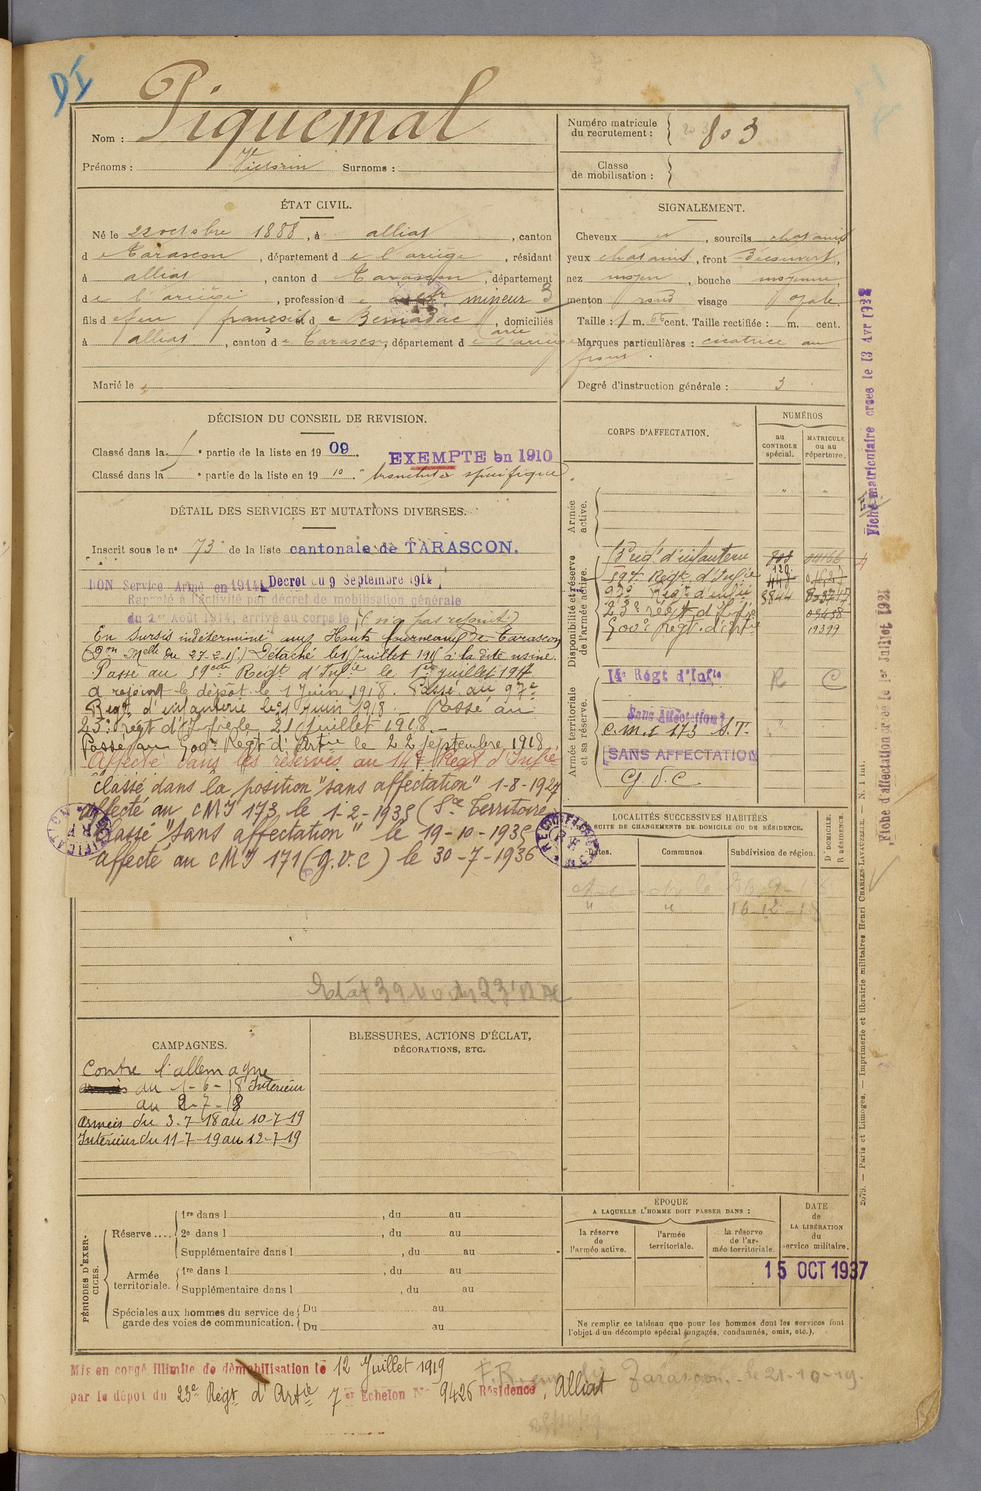 Nom : Piquemal
Prénoms : Victorin Surnoms :
Numéro matricule
du recrutement : 803
Classe
de mobilisation :
ÉTAT CIVIL.
Né le 22 octobre 1888, à alliat, canton
de Tarascon, département de l'ariège, résidant
à alliat, canton de Tarascon, département
de l'ariège, profession de mineur 3
fils de feu françois et de Bernadac, domiciliés
à alliat, canton de Tarascon, département de l'ariège
Marié le
SIGNALEMENT.
Cheveux, sourcils chatains
yeux chatains, front découvert,
nez moyen, bouche moyenne
menton rond visage ovale
Taille : 1 m. cent. Taille rectifiée : m. cent.
Marques particulières : cicatrice au
front.
Degré d'instruction générale : 3
DÉCISION DU CONSEIL DE REVISION.
Classé dans la e partie de la liste en 1909 EXEMPTE en 1910
Classé dans la e partie de la liste en 1910. bronchite spécifique
DÉTAIL DES SERVICES ET MUTATIONS DIVERSES.
Inscrit sous le no 73 de la liste cantonale de TARASCON.
BON Service Armé en 1914 Decret du 9 Septembre 1914
Rappelé à l'activité par décret de mobilisation générale
du 2 Août 1914, arrivé au corps le (n'a pas rejoint)
En sursis indéterminé aux Hauts fourneaux de Tarascon
Détaché le 1 juillet à la dite usine.
Passé au 59ème Regt d'Inftie le 1er juillet 1917
a rejoint le dépôt le 1 juin 1918. Passé au 97e
Regt d'infanterie le 1 juin 1918. Passé au
23e Régt d'Inftrie le 21 juillet 1918.
Passé au Régt d'Artie le 22 septembre 1918
Affecté dans les réserves au 14e Régt d'Inftie
Classé dans la position "sans affectation" 1-8-1927
affecté au CMI 173, le 1-2-1935 (Sce Territoire)
Classé "sans affectation" le 19-10-193
affecté au CMI 171 (g.v.c) le 30-7-1936
CORPS D'AFFECTATION.
NUMÉROS
au
CONTROLE
spécial.
MATRICULE
ou au
répertoire.
Armée
active.
Disponibilité et réserve
de l'armée active.
Régt d'infanterie 803
Régt d'Inftie
97e Régt d'inftie
23e régt d'Inftie
Régt d'Artie 19399
Armée territoriale
et sa réserve.
14e Régt d'Infie R C
Sans Affectation
C.M.I 173 S.T.
SANS AFFECTATION
G.V.C.
LOCALITÉS SUCCESSIVES HABITÉES
PAR SUITE DE CHANGEMENTS DE DOMICILE OU DE RÉSIDENCE.
Dates. Communes. Subdivision de région. D. DOMICILE. R. RÉSIDENCE.
" " 16-12-18
CAMPAGNES.
Contre l'allemagne
au 1-6-18 Intérieur
au 2-7-18
Armées du 3-7-18 au 10-7-19
Intérieur du 11-7-19 au 12-7-19
BLESSURES, ACTIONS D'ÉCLAT,
DÉCORATIONS, ETC.
PÉRIODES D'EXERCICES.
Réserve....
1re dans l , du au
2e dans l , du au
Supplémentaire dans l , du au
Armée
territoriale.
1re dans l , du au
Supplémentaire dans l , du au
Spéciales aux hommes du service de
garde des voies de communication.
Du au
Du au
ÉPOQUE
A LAQUELLE L'HOMME DOIT PASSER DANS :
la réserve
de
l'armée active.
l'armée
territoriale.
la réserve
de l'ar-
mée territoriale.
DATE
de
LA LIBÉRATION
du
service militaire.
15 OCT 1937
Ne remplir ce tableau que pour les hommes dont les services font
l'objet d'un décompte spécial (engagés, condamnés, omis, etc.).
Mis en congé illimité de démobilisation le 12 Juillet 1919
par le dépôt du 23e Régt d'Artie 7er Echelon No 9426 Résidence, Alliat
Tarascon. le 21-10-19.
Fiche matriculaire créée le 13 Avr 193
Fiche d'affectation créée le 1er Juillet 1921
Paris et Limoges. — Imprimerie et librairie militaires Henri CHARLES-LAVAUZELLE.